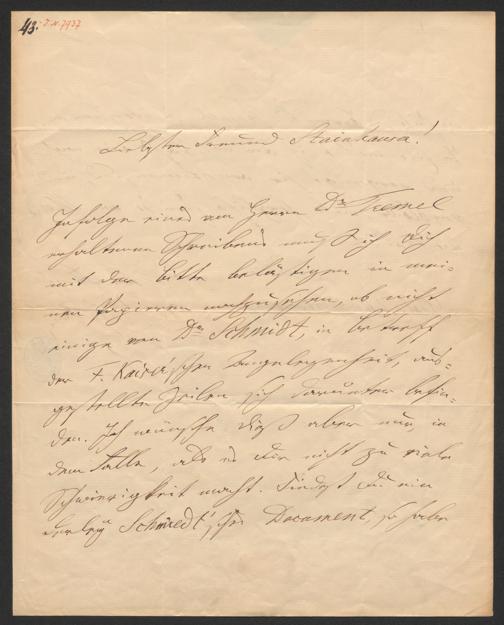 43. J.N. 7937
Liebster Freund Steinhauser!
Infolge eines von Herrn Dr Tremel
erhaltenen Schreibens muß ich dich
mit der Bitte belästigen in mei-
nen Papieren nachzusehen, ob nicht
einige von Dr Schmidt, in betreff
der schen Angelegenheit, aus-
gestellte Zeilen sich darunter befin-
den. Ich wünsche dieß aber nur, in
dem Falle, als es dir nicht zu viele
Schwierigkeit macht. Findest du ein
derley Schmiedt'sches Document, so habe